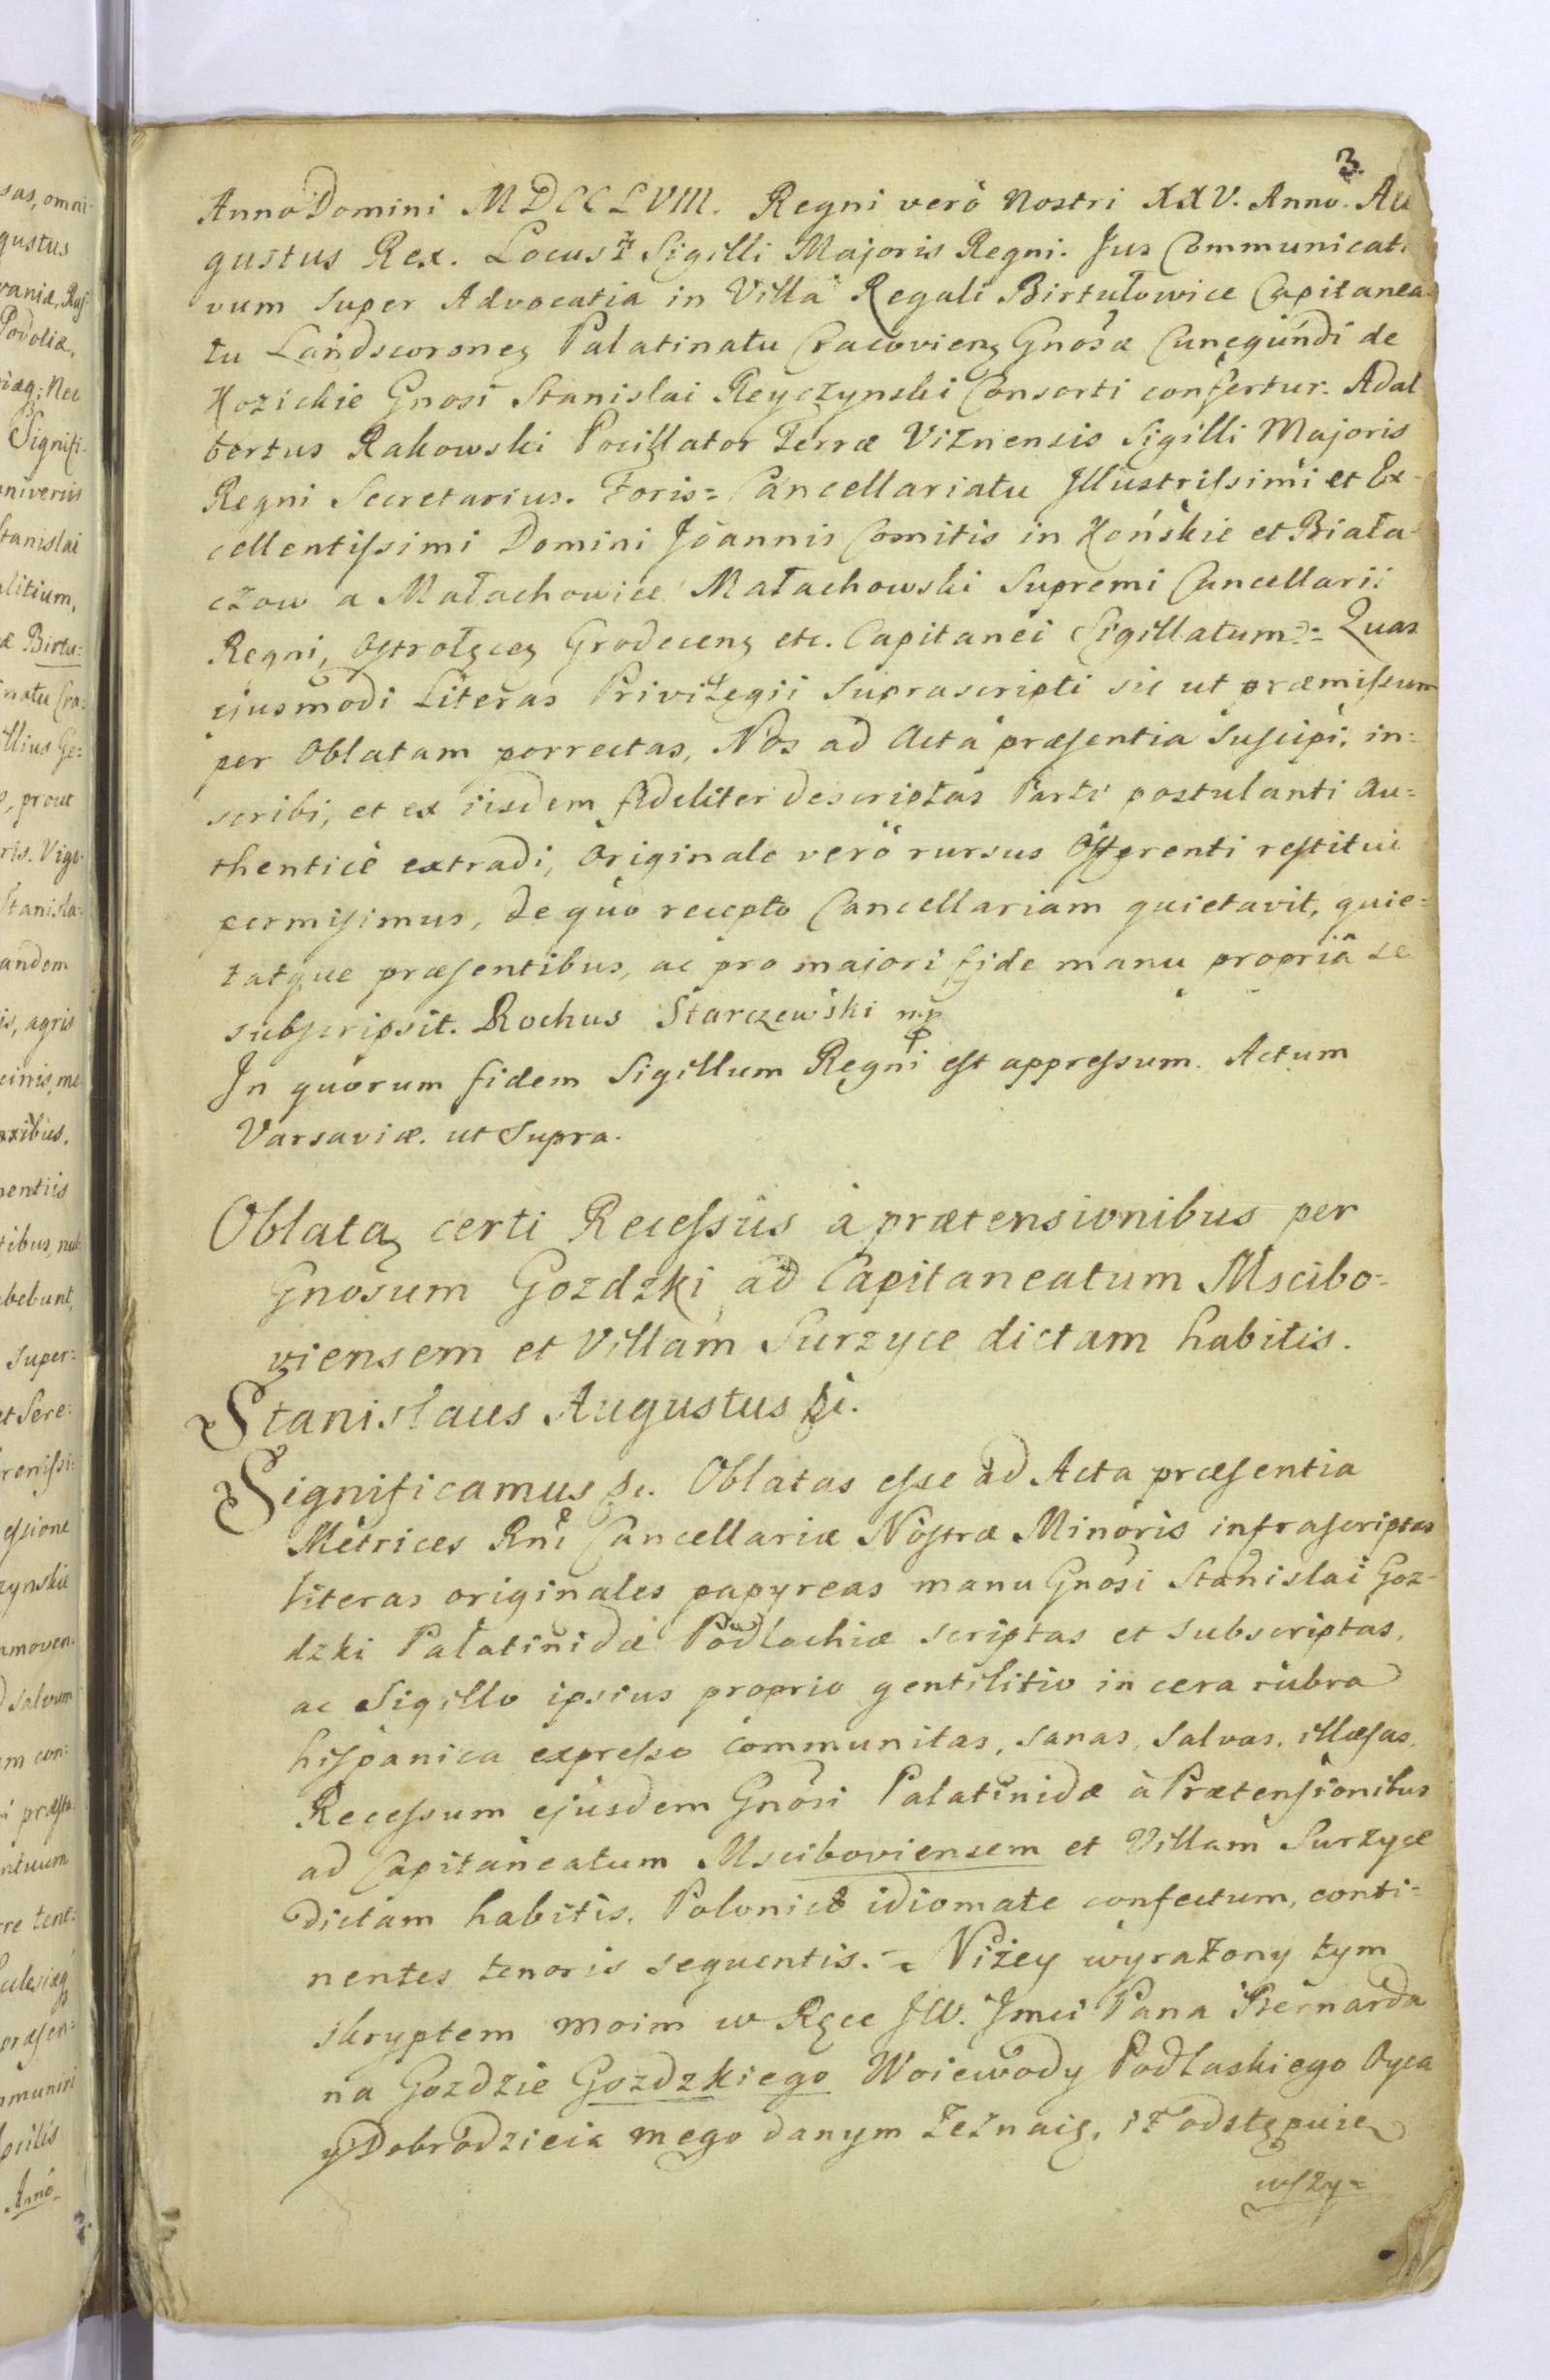 3.
Anno Domini MDCCLVIII. Regni verò Nostri XXV. Anno. Au
gustus Rex. Locus Sigilli Majoris Regni. Jus Communicati
vum super Advocatia in Villa Regali Birtułowice Capitanea
tu Landscoronen Palatinatu Cracovien Gnosæ Cunegundi de
Kozickie Gnosi Stanislai Reyczynski Consorti confertur. Adal
bertus Rakowski Pocillator Terræ Viznensis Sigilli Majoris
Regni Secretarius. Foris= Cancellariatu Jllustriſsimi et Ex-
cellentiſsimi Domini Joannis Comitis in Końskie et Biała-
czow a Małachowice Małachowski Supremi Cancellarii
Regni, Oſtrołęcen Grodecen etc. Capitanei Sigillatum = Quas
ejusmodi Literas Privilegii Suprascripti sic ut præmiſsum
per Oblatam porrectas, Nos ad Acta præſentia Suſcipi, in=
scribi, et ex iisdem fideliter descriptas Parti postulanti au=
thenticè extradi, Originale verò rursus Offerenti reſtitui
permiſimus, de quo recepto Cancellariam quietavit, quie=
tatque præſentibus, ac pro majori fide manu propriâ se
subſcripsit. Rochus Starczewski mp
Jn quorum fidem Sigillum Regni eſt appreſsum. Actum
Varsaviæ. ut Supra.
Oblata certi Receſsûs à prætensionibus per
Gnosum Gozdzki ad Capitaneatum Mscibo=
viensem et Villam Surzyce dictam habitis.
Stanislaus Augustus &c.
Significamus &c. Oblatas eſse ad Acta præſentia
Metrices Rni Cancellariæ Noſtræ Minoris infraſcriptas
literas originales papyreas manu Gnosi Stanislai Goz-
dzki Palatinidæ Podlachiæ scriptas et subscriptas,
ac Sigillo ipsius proprio gentilitio in cera rubra
hiſpanica expreſso communitas, sanas, salvas, illæſas,
Receſsum ejusdem Gnosi Palatinidæ à Prætenſionibus
ad Capitaneatum Msciboviensem et Villam Surzyce
dictam habitis. Polonico idiomate confectum, conti=
nentes tenoris sequentis. = Niżey wyrażony tym
skryptem moim w Ręce JW. Jmci Pana Bernarda
na Gozdzie Gozdzkiego Woiewody Podlaskiego Oyca
y Dobrodzieia mego danym zeznaię, iż odstępuię
wſzy=